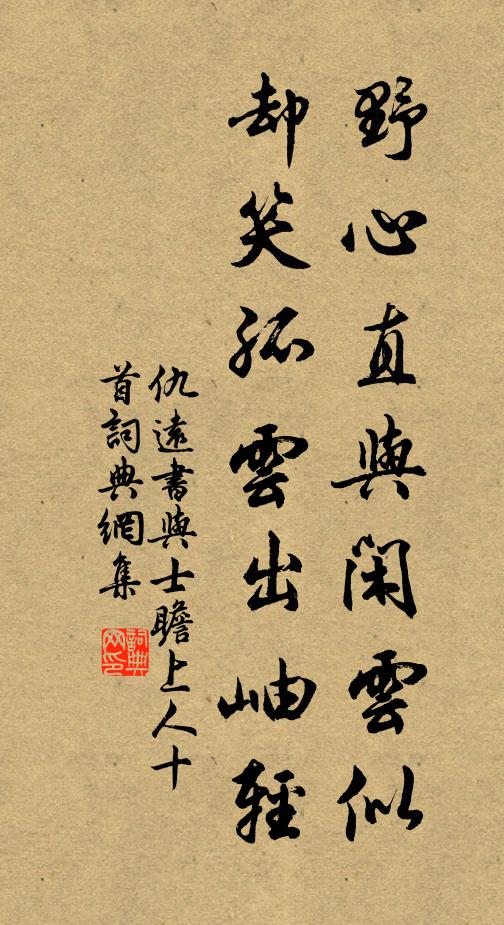 野心直與閑雲似
却笑孤雲出岫輕
仇遠書與士瞻上人十
首詞典網集
詞典
网印